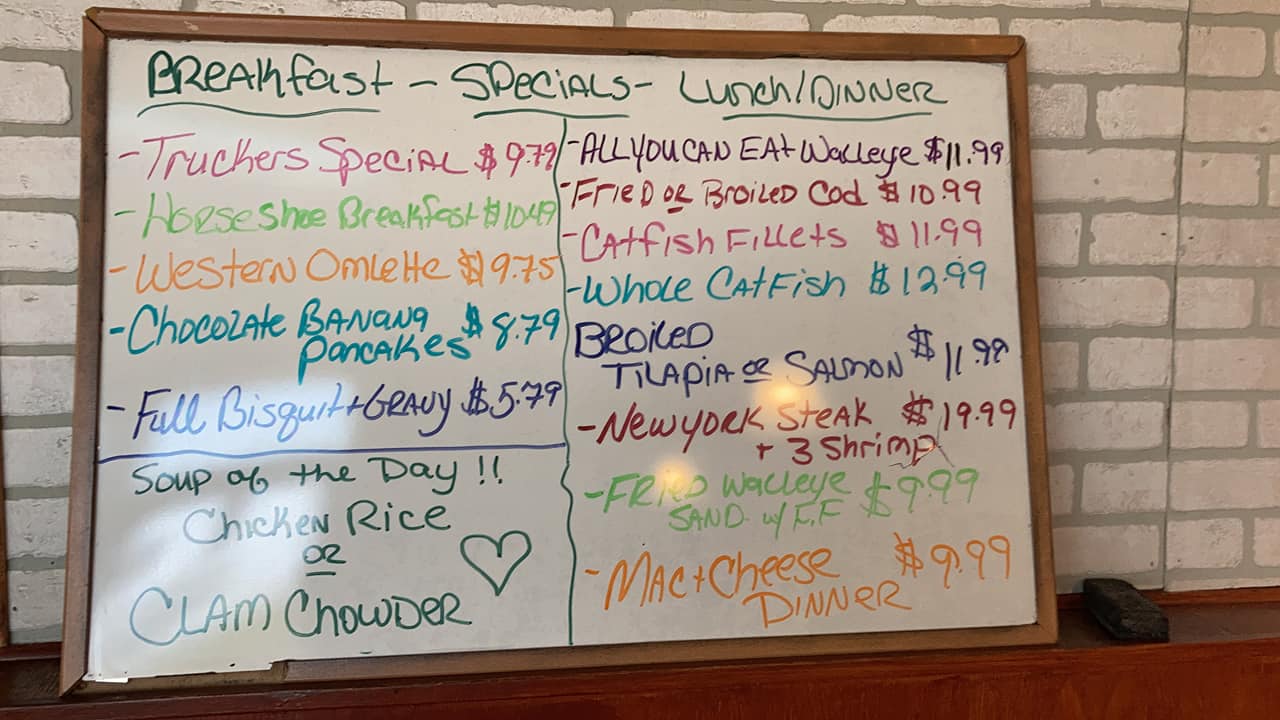 Breakfast - Specials - Lunch/Dinner
- Truckers Special $9.79
- Horseshoe Breakfast $10.49
- Western Omlette $9.75
- Chocolate Banana $8.79
Pancakes
- Full Bisquit + Gravy $5.79
Soup of the Day !!
Chicken Rice
or
Clam Chowder
- All you can eat Walleye $11.99
- Fried or Broiled Cod $10.99
- Catfish Fillets $11.99
- Whole Catfish $12.99
Broiled
Tilapia or Salmon $11.99
- New york Steak $19.99
+ 3 Shrimp
- Fried Walleye $9.99
Sand. w/ F.F
- Mac + Cheese $9.99
Dinner